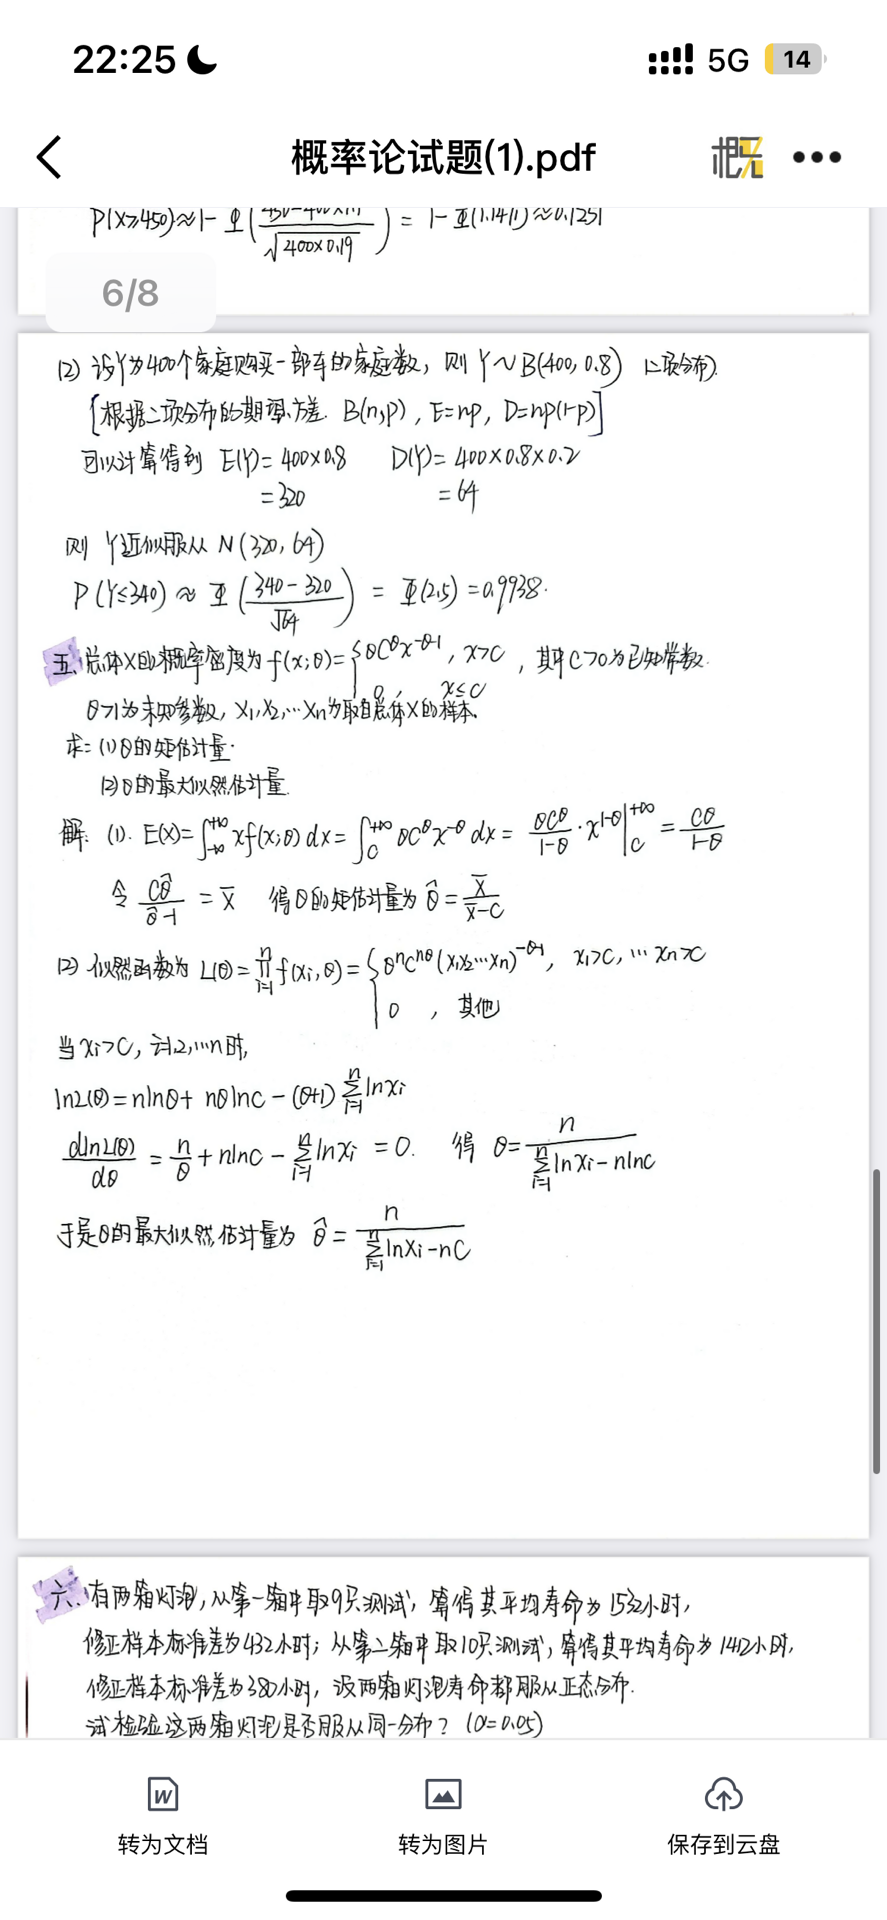 22:25
5G
14
概率论试题(1).pdf
P(X≥450)≈1-Φ(450-400×1.1/√400×0.19) = 1-Φ(1.1471)≈0.1251
6/8
(2) 设Y为400个家庭购买一部车的家庭数, 则 Y~B(400, 0.8) (二项分布).
[根据二项分布的期望、方差. B(n,p), E=np, D=np(1-p)]
可以计算得到 E(Y)= 400×0.8 D(Y)= 400×0.8×0.2
=320 =64
则 Y近似服从 N(320, 64)
P(Y≤340) ≈ Φ(340-320/√64) = Φ(2.5)=0.9938.
五. 总体X的概率密度为 f(x;θ)={θC^θx^-θ-1, x>C , 其中C>0为已知常数.
0, x≤C
θ>1为未知参数, X1,X2,…Xn为取自总体X的样本.
求: (1)θ的矩估计量.
(2)θ的最大似然估计量.
解: (1). E(X)=∫_-∞^+∞ xf(x;θ)dx=∫_C^+∞ θC^θx^-θ dx= θC^θ/1-θ · x^1-θ|_C^+∞ = Cθ/1-θ
令 Cθ̂/θ̂-1 = X̄ 得θ的矩估计量为 θ̂= X̄/X̄-C
(2) 似然函数为 L(θ)=∏_i=1^n f(xi,θ)={θ^nC^nθ(x1x2…xn)^-θ-1, x1>C,…xn>C
0 , 其他
当xi>C, i=1,2,…n时,
lnL(θ)=nlnθ+nθlnC-(θ+1)∑_i=1^n lnxi
dlnL(θ)/dθ = n/θ + nlnC - ∑_i=1^n lnxi =0. 得 θ= n/∑_i=1^n lnxi-nlnC
于是θ的最大似然估计量为 θ̂= n/∑_i=1^n lnXi-nC
六. 有两箱灯泡, 从第一箱中取9只测试, 算得其平均寿命为1532小时,
修正样本标准差为432小时; 从第二箱中取10只测试, 算得其平均寿命为1412小时,
修正样本标准差为380小时, 设两箱灯泡寿命都服从正态分布.
试检验这两箱灯泡是否服从同一分布? (α=0.05)
转为文档
转为图片
保存到云盘